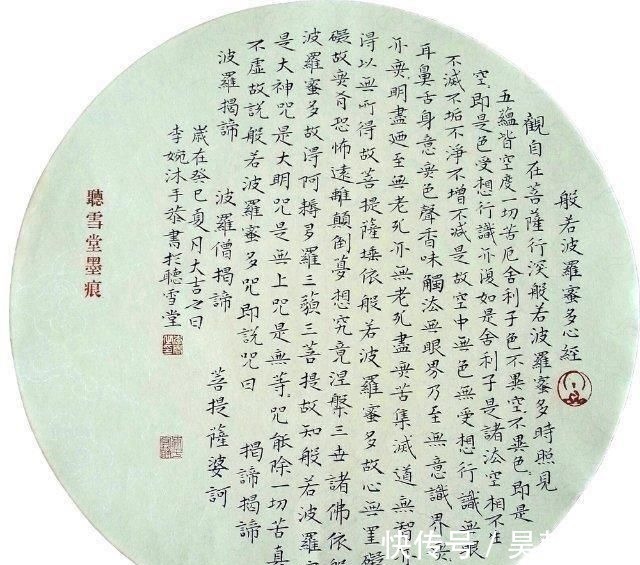 般若波羅蜜多心經
觀自在菩薩行深般若波羅蜜多時照見
五蘊皆空度一切苦厄舍利子色不異空不異色即是
空即是色受想行識亦復如是舍利子是諸法空相不生
不滅不垢不淨不增不減是故空中無色無受想行識無眼
耳鼻舌身意無色聲香味觸法無眼界乃至無意識界無
亦無明盡廼至無老死亦無老死盡無苦集滅道無智亦
得以無所得故菩提薩埵依般若波羅蜜多故心無罣礙
礙故無有恐怖遠離顛倒夢想究竟涅槃三世諸佛依般
波羅蜜多故得阿耨多羅三藐三菩提故知般若波羅
是大神咒是大明咒是無上咒是無等咒能除一切苦真
不虛故說般若波羅蜜多咒即說咒曰 揭諦揭諦
波羅揭諦 波羅僧揭諦 菩提薩婆訶
歲在癸巳夏月大吉之日
李婉沐手恭書於聽雪堂
聽雪堂墨痕
快传号 / 吴